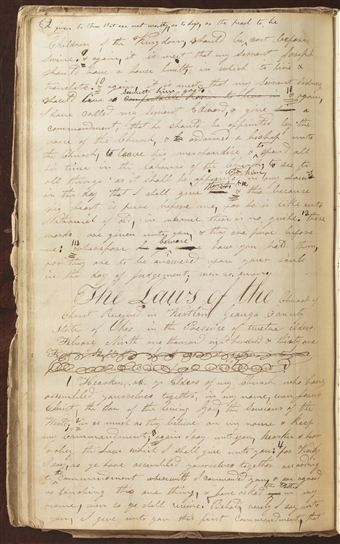 is given to them that are not worthy, or to dogs, or the pearl to be
Children of the Kingdom, should be cast before
swine. & again, it is meet that my servent Joseph
should have a house built, in which to live &
translate. 10 & again it is meet that my servent Sidney
should live as seemeth him good 11 & again,
I have called my servent Edward, & give a
commandment, that he should be appointed by the
voice of the Church, & ordained a bishop unto
the church, to leave his merchandise & to spend all
his time in the labours of the Church, to see to
all things as it shall be appointed unto him in my laws
in the day that I shall give them & this because
his heart is pure before me, for he is like unto
Nathaniel of old, in whom there is no guile. 12 These
words are given unto you, & they are pure before
me: wherefore beware how you hold them,
for they are to be answered upon your souls
in the day of judgement, even so amen.
The Laws of the Church of
Christ Received in Kirtland Geauga County
State of Ohio in the Presence of twelve elders
February Ninth one thousand eight hundred & thirty one
1 Hearken, oh ye Elders of my Church who have
assembled yourselves together, in my name, even Jesus
Christ, the Son of the living God, the Saviour of the
World, in as much as they believe on my name & keep
my commandments, again I say unto you, hearken & hear
& obey the laws which I shall give unto you: 4 for Verily
I say, as ye have assembled yourselves together according
to the commandment wherewith I commanded you, & are agreed
as touching this one thing, & have asked the Father in my
name, even so ye shall receive. Behold, verily I say unto
you, I give unto you this first commandment, that